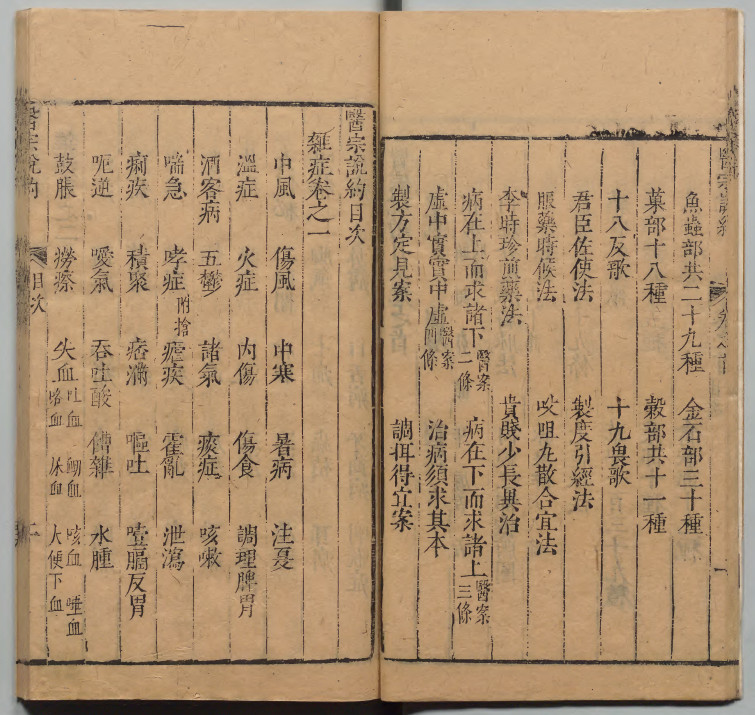 魚蟲部共二十九種 金石部三十種
菓部十八種 穀部共十一種
十八反歌 十九畏歌
君臣佐使法 製度引經法
服藥時候法 㕮咀丸散合宜法
李時珍煎藥法 貴賤少長異治
病在上而求諸下醫案二條 病在下而求諸上醫案三條
虛中實實中虛醫案四條 治病須求其本
製方定見案 調揖得立案
醫宗說約目次
雜症卷之一
中風 傷風 中寒 暑病 注夏
溫症 火症 內傷 傷食 調理脾胃
酒客病 五鬱 諸氣 痰症 咳嗽
喘急 哮症附搶 瘧疾 霍亂 泄瀉
痢疾 積聚 痞滿 嘔吐 噎膈反胃
呃逆 噯氣 吞吐酸 嘈雜 水腫
鼓脹 癆瘵 失血 吐血 衂血 咳血 唾血 咯血 溺血 大便下血
醫宗說約 目次 二